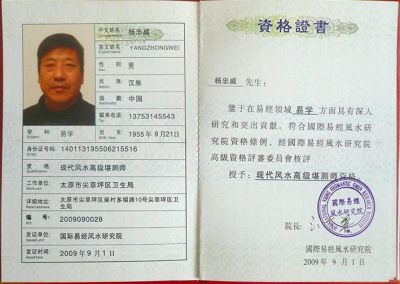 中文姓名: 杨忠威
英文姓名: YANGZHONGWEI
性 别: 男
民 族: 汉族
国 籍: 中国
联系电话: 13753145543
学 科: 易学
出 生: 1955年9月21日
身份证号码: 140113195506215516
资 格: 现代风水高级堪测师
工作单位: 太原市尖草坪区卫生局
详细地址: 太原市尖草坪区柴村多福路10号尖草坪区卫生局
编 号: 2009090028
发证单位: 国际易经风水研究院
发证时间: 2009年9月1日
資格證書
杨忠威 先生:
鉴于在易經領域 易学 方面具有深入
研究和突出貢獻。符合國際易經風水研
究院資格條例，經國際易經風水研究院
高級資格評審委員會核評
授予: 现代风水高级堪测师資格
國際易經
風水研究院
院長:
國際易經風水研究院
2009年9月1日